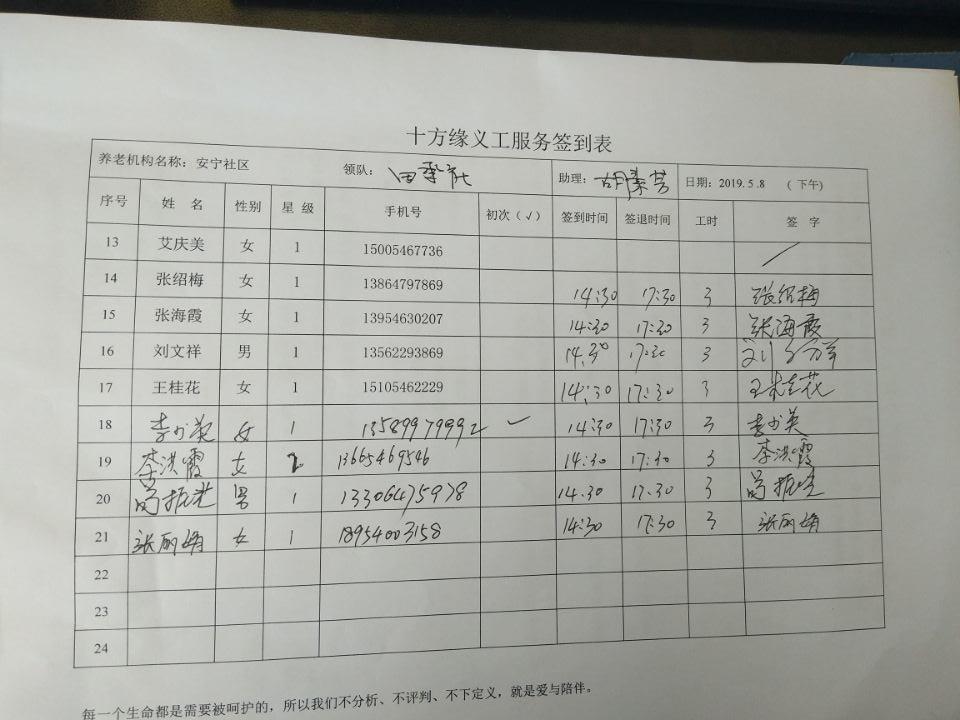 十方缘义工服务签到表
养老机构名称：安宁社区 领队： 助理：胡素芳 日期：2019.5.8 （下午）
序号 姓 名 性别 星 级 手机号 初次（√） 签到时间 签退时间 工时 签 字
13 艾庆美 女 1 15005467736 /
14 张绍梅 女 1 13864797869 14:30 17:30 3 张绍梅
15 张海霞 女 1 13954630207 14:30 17:30 3 张海霞
16 刘文祥 男 1 13562293869 14.30 17:30 3 刘文祥
17 王桂花 女 1 15105462229 14:30 17:30 3 王桂花
18 李少英 女 1 13589979992 ✓ 14:30 17:30 3 李少英
19 李洪霞 女 1 13665469546 14:30 17:30 3 李洪霞
20 男 1 13306475978 14.30 17.30 3
21 张丽娟 女 1 18954003158 14:30 17:30 3 张丽娟
22
23
24
每一个生命都是需要被呵护的，所以我们不分析、不评判、不下定义，就是爱与陪伴。